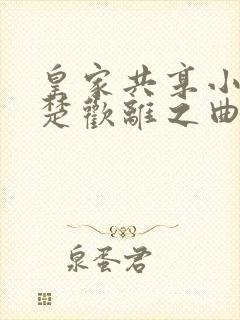 皇家共享小
楚歡離之曲
泉蛋君